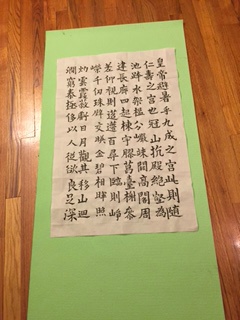 皇帝避暑乎九成之宮此則隨
仁壽之宮也冠山抗殿絕壑為
池跨水架楹分巖竦闕高閣周
建長廊四起棟宇膠葛臺榭參
差仰視則迢遞百尋下臨則崢
嶸千仞珠璧交映金碧相暉照
灼雲霞蔽虧日月觀其移山迴
澗窮泰極侈以人從欲良足深